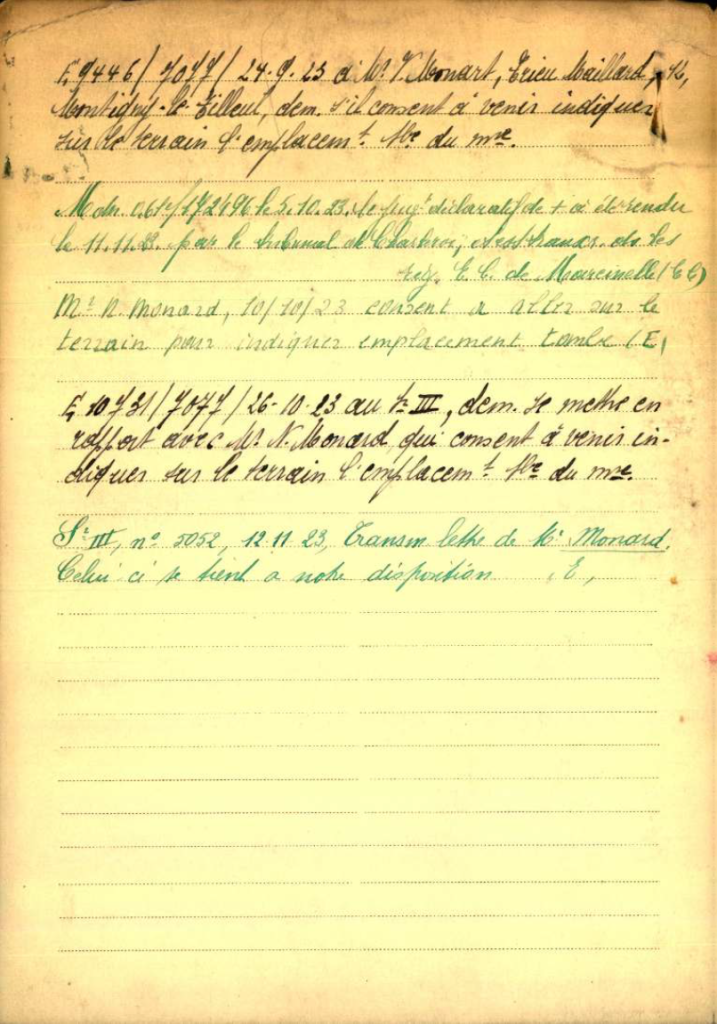 E, 9446/7077/24-9-23 à Mr. V. Monart, Trieu Maillard, 42,
Montigny-le-Tilleul, dem. s'il consent à venir indiquer
sur le terrain l'emplacemt. tbe du mre.
le 5.10.23. le jugt déclaratif de + a été rendu
le 11.11.22. par le tribunal de Charleroi, et est transcr. ds les
reg. E.C. de Marcinelle (EC)
Mr N. Monard, 10/10/23 consent a aller sur le
terrain pour indiquer emplacement tombe (E,
E, 10731/7077/26-10-23 au Sr III, dem. se mettre en
rapport avec Mr. N. Monard qui consent à venir in-
diquer sur le terrain l'emplacemt. tbe du mre.
Sr III, n° 5052, 12.11 23, Transm lettre de Mr Monard.
Celui ci se tient a notre disposition E,